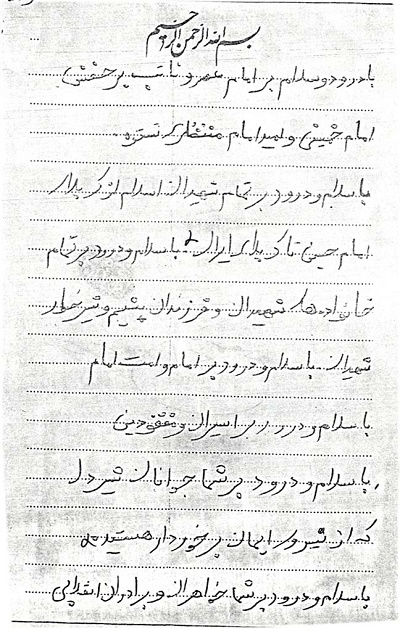 بسم الله الرحمن الرحیم
با درود و سلام بر امام عصر و نائب بر حقش
امام خمینی و امید امام منتظری نستوه.
با سلام و درود بر تمام شهیدان اسلام از کربلای
امام حسین تا کربلای ایران با سلام و درود بر تمام
خانواده های شهیدان و فرزندان یتیم و شیرخوار
شهیدان. با سلام و درود بر امام و امت امام
با سلام و درود بر اسیران و مفقودین
با سلام و درود بر شما جوانان شیردل
که از نیروی ایمان برخوردار هستید
با سلام و درود بر شما خواهران و برادران انقلابی